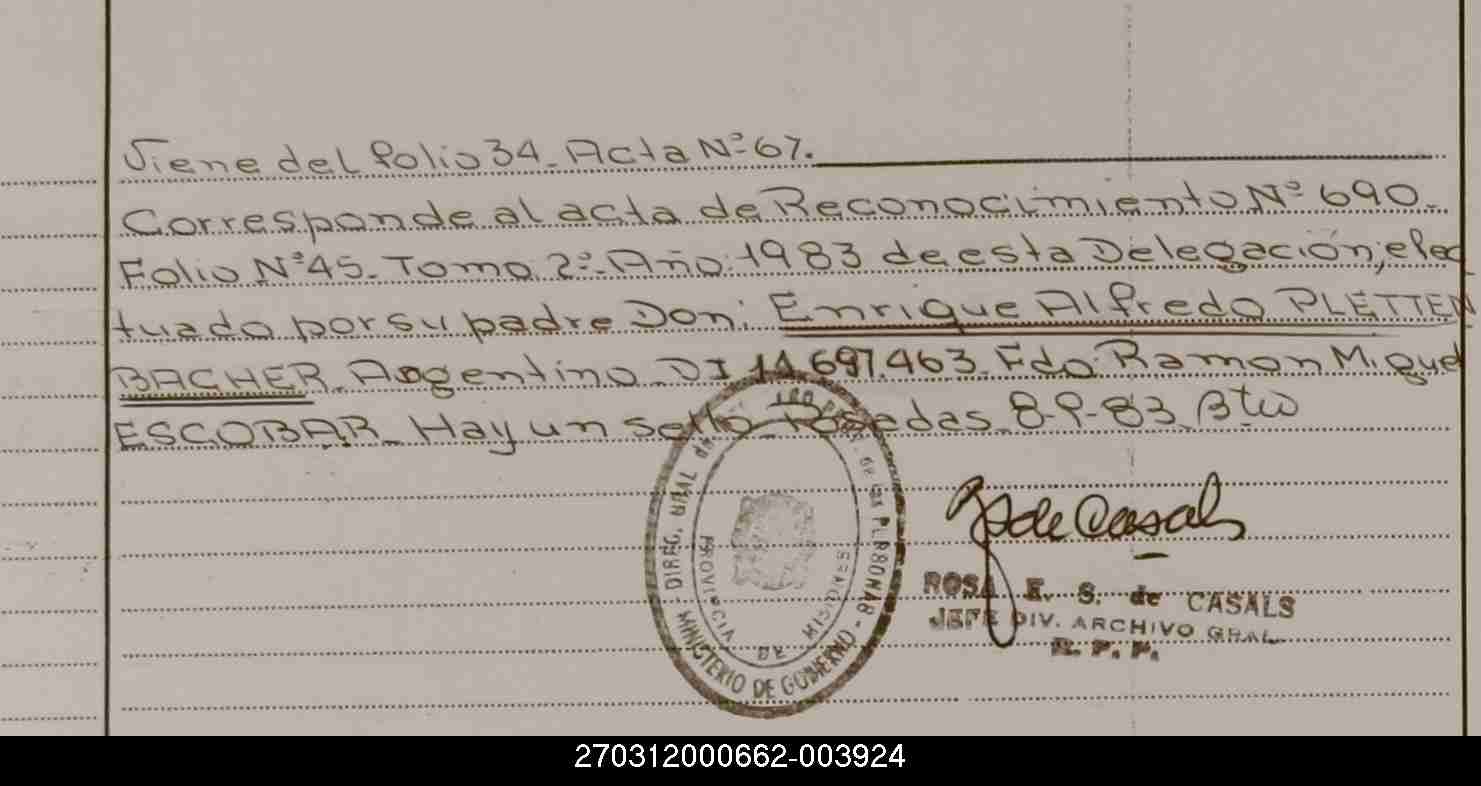 Viene del folio 34. Acta Nº 67.
Corresponde al acta de Reconocimiento Nº 690.
Folio Nº 45. Tomo 2º. Año: 1983 de esta Delegación, efec
tuado por su padre Don: Enrique Alfredo PLETTEN
BACHER. Argentino. DI 14.697.463. Fdo: Ramon Miguel
ESCOBAR. Hay un sello. Posadas. 8-9-83.
DIREG. GRAL de las PERSONAS - MINISTERIO DE GOBIERNO
PROVINCIA DE MISIONES
de Casals
ROSA E. S. de CASALS
JEFE DIV. ARCHIVO GRAL
R. P. P.
270312000662-003924